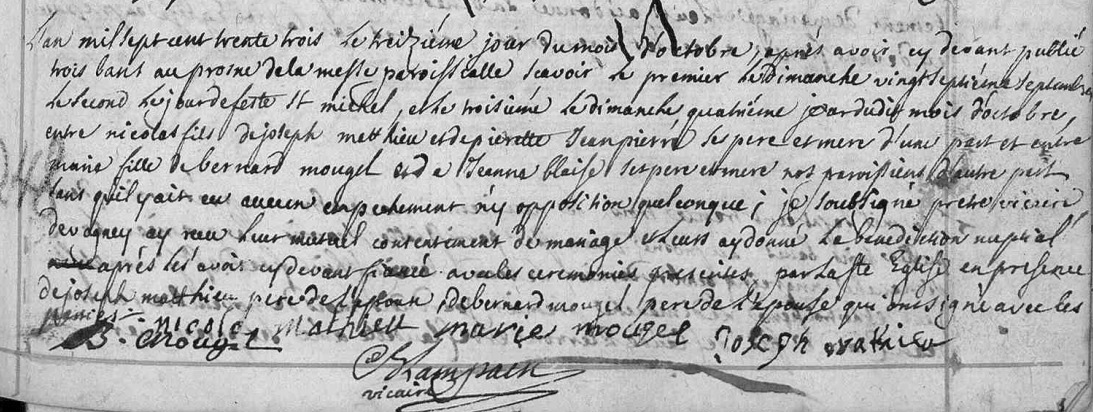 L'an mil sept cent trente trois le treizième jour du mois d'octobre, après avoir cy devant publié
trois bans au prosne de la messe paroissialle scavoir le premier le dimanche vingt septième septembre
le second le jour de fette St michel, et le troisième le dimanche quatrième jour dudit mois d'octobre,
entre nicolas fils de joseph matthieu et de pierette Jeanpierre ses pere et mere d'une part et entre
marie fille de bernard mougel et de Jeanne blaise ses pere et mere nos paroissiens d'autre part
sans qu'il y ait eu aucun empechement ny opposition quelconque ; je soubsigné pretre vicaire
de vagney ay receu leur mutuel consentement de mariage et leurs ay donné la benediction nuptial
après les avoir cy devant fiancé avec les ceremonies prescrites par la ste Eglise en presence
de joseph matthieu pere de l'epoux, de bernard mougel pere de l'epouse qui ont signé avec les
parties
nicolas Mathieu marie mougel Joseph mathieu
B. Mougel
vicaire